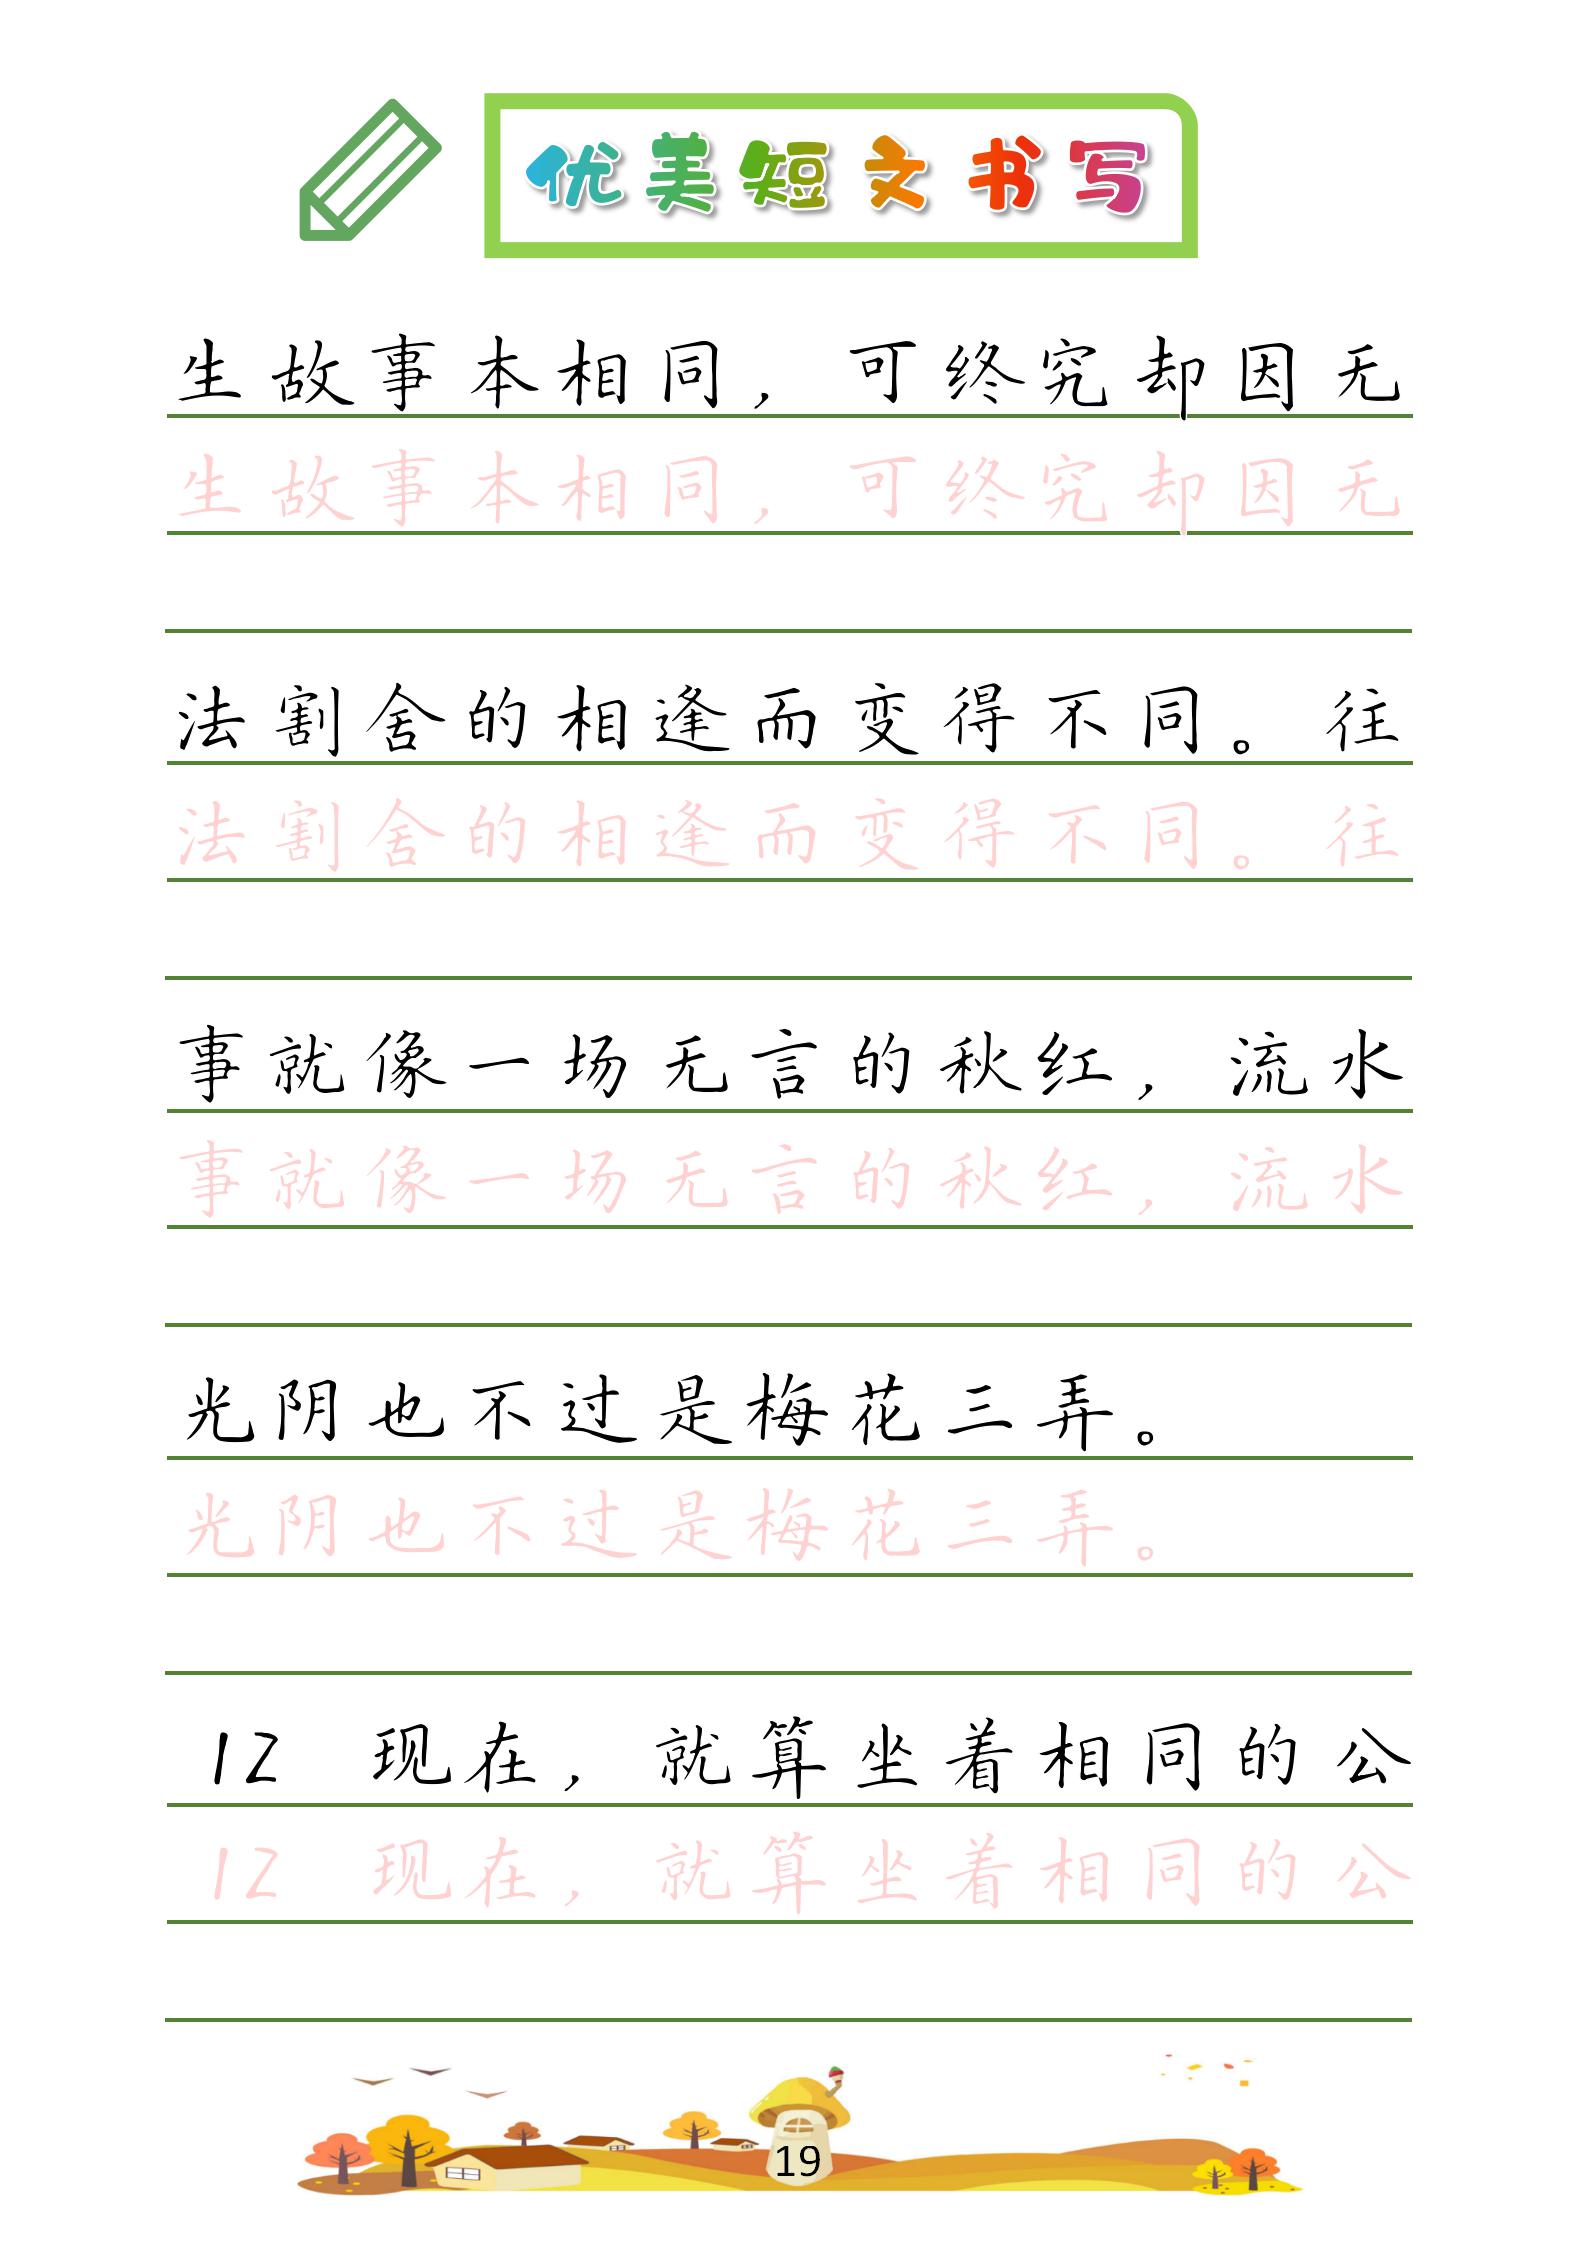 优美短文书写
生故事本相同，可终究却因无
生故事本相同，可终究却因无
法割舍的相逢而变得不同。往
法割舍的相逢而变得不同。往
事就像一场无言的秋红，流水
事就像一场无言的秋红，流水
光阴也不过是梅花三弄。
光阴也不过是梅花三弄。
12 现在，就算坐着相同的公
12 现在，就算坐着相同的公
19